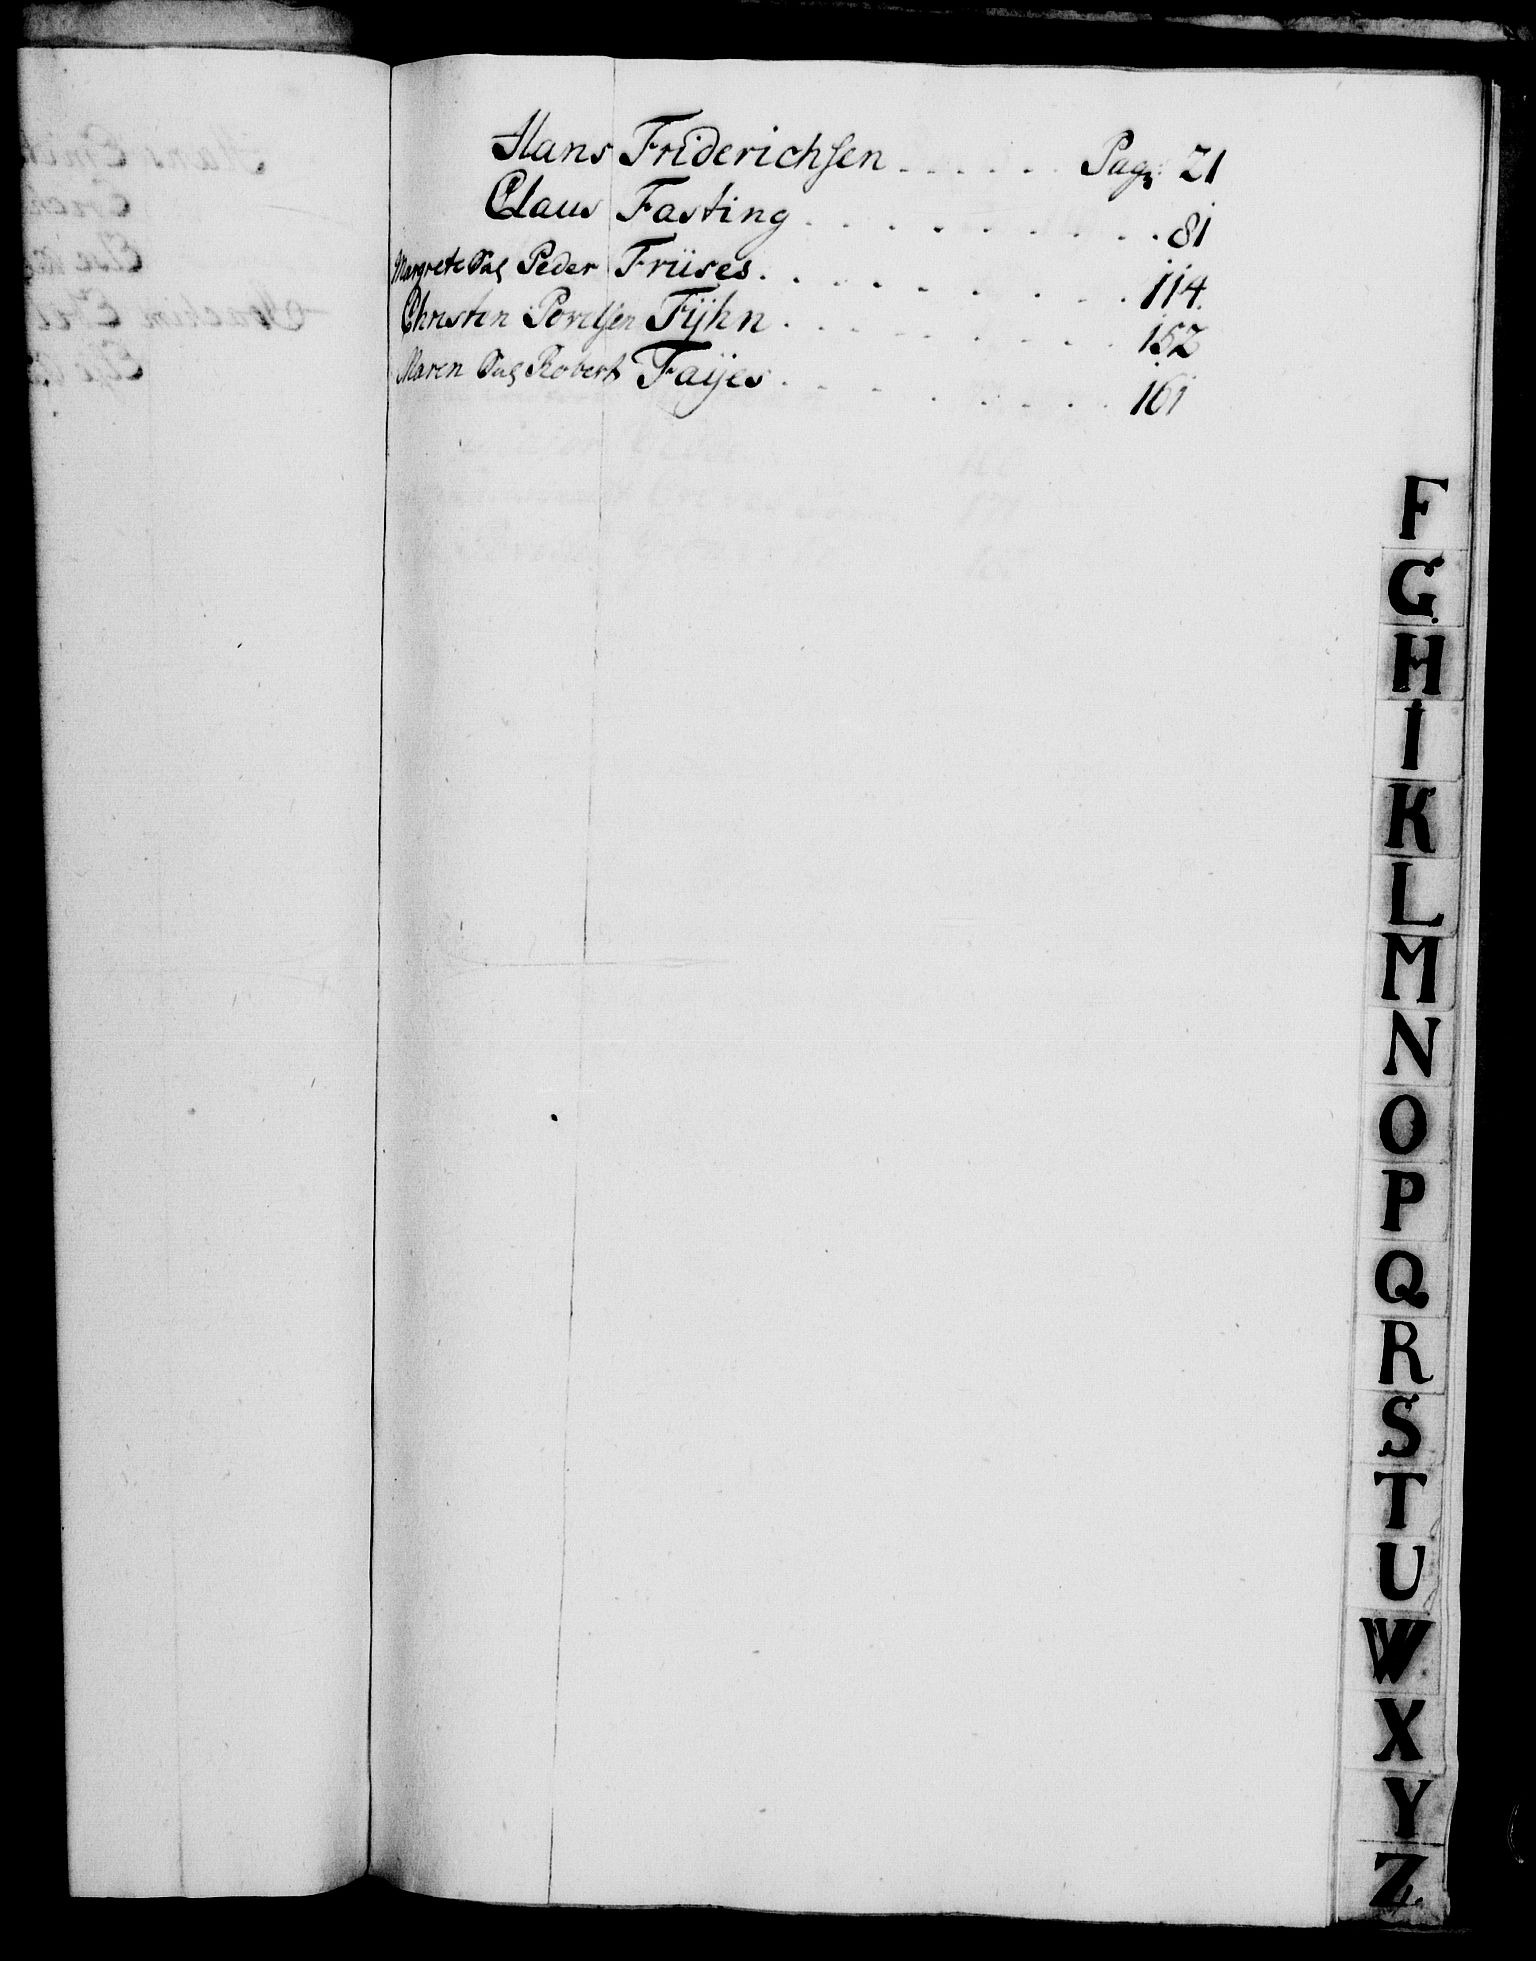 Hans Friderichsen . . . . . . Pag: 21
Claus Fasting . . . . . . . . 81
Margrete Sal Peder Friises . . . . . . . . 114.
Christen Povelsen Fÿhn . . . . . . . 152
Maren Sal Robert Faÿes . . . . . . . . 161
F
G
H
I
K
L
M
N
O
P
Q
R
S
T
U
W
X
Y
Z